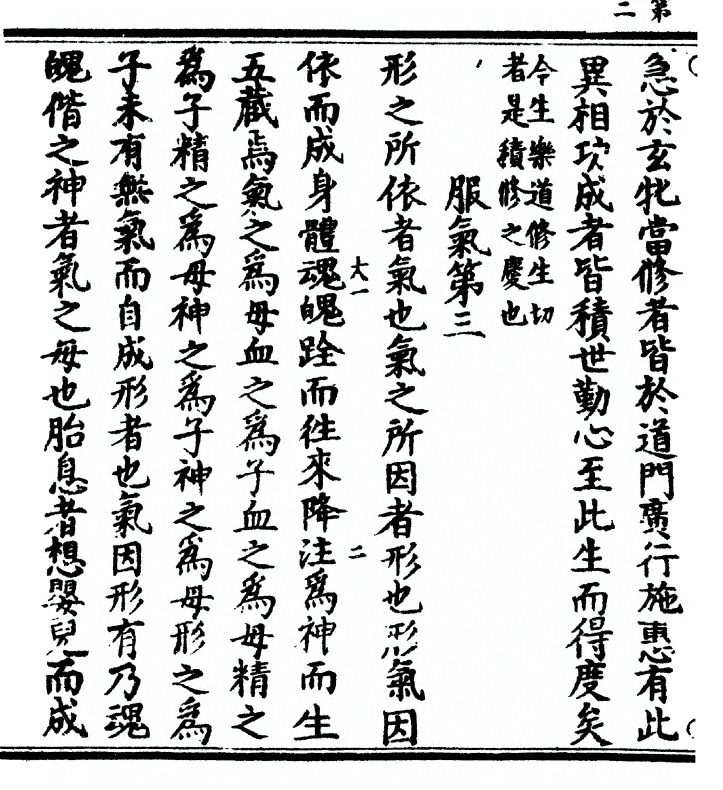 第二
急於玄牝當修者皆於道門廣行施惠有此
異相功成者皆積世勤心至此生而得度矣
今生樂道修生切
者是積修之慶也
服氣第三
形之所依者氣也氣之所因者形也形氣因
依而成身體魂魄跧而徃來降注爲神而生
大一
二
五藏焉氣之爲母血之爲子血之爲母精之
爲子精之爲母神之爲子神之爲母形之爲
子未有無氣而自成形者也氣因形有乃魂
魄偕之神者氣之母也胎息者想嬰兒而成